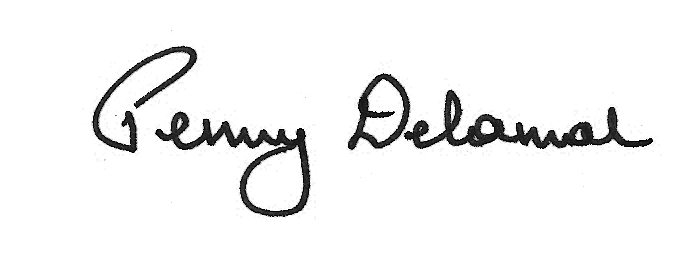 Penny Delamar